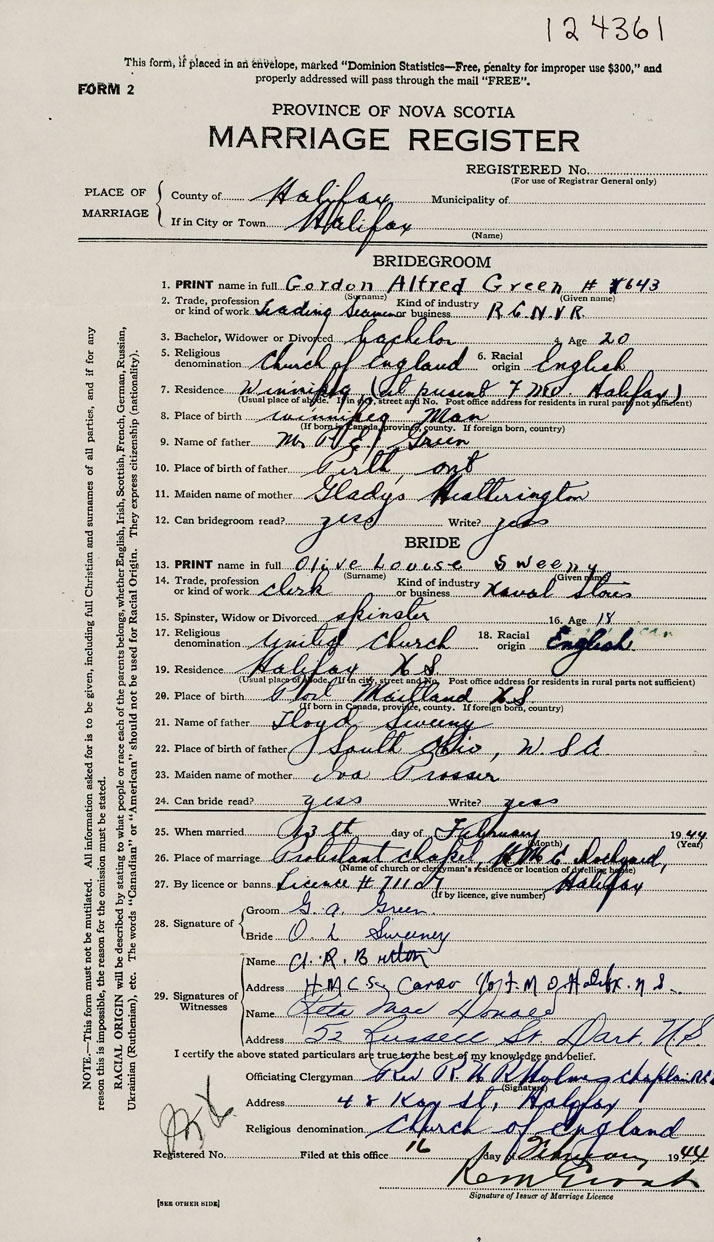 124361
This form, if placed in an envelope, marked "Dominion Statistics—Free, penalty for improper use $300," and
properly addressed will pass through the mail "FREE".
FORM 2
PROVINCE OF NOVA SCOTIA
MARRIAGE REGISTER
REGISTERED No.
(For use of Registrar General only)
PLACE OF MARRIAGE
County of Halifax Municipality of
If in City or Town Halifax
(Name)
BRIDEGROOM
1. PRINT name in full Gordon Alfred Green #
(Surname) (Given name)
2. Trade, profession or kind of work Leading Seaman Kind of industry or business R.C.N.V.R.
3. Bachelor, Widower or Divorced bachelor 4. Age 20
5. Religious denomination Church of England 6. Racial origin English
7. Residence Winnipeg (at present Halifax)
(Usual place of abode. If in city, street and No. Post office address for residents in rural parts not sufficient)
8. Place of birth Winnipeg Man
(If born in Canada, province, county. If foreign born, country)
9. Name of father Green
10. Place of birth of father Perth, ont
11. Maiden name of mother Gladys Heatherington
12. Can bridegroom read? yess Write? yess
BRIDE
13. PRINT name in full Olive Louise Sweeny
(Surname) (Given name)
14. Trade, profession or kind of work clerk Kind of industry or business Naval Stores
15. Spinster, Widow or Divorced spinster 16. Age 18
17. Religious denomination United Church 18. Racial origin English
19. Residence Halifax N.S.
(Usual place of abode. If in city, street and No. Post office address for residents in rural parts not sufficient)
20. Place of birth Port Maitland N.S.
(If born in Canada, province, county. If foreign born, country)
21. Name of father Floyd Sweeny
22. Place of birth of father South Ohio, U.S.A
23. Maiden name of mother Iva Prosser
24. Can bride read? yess Write? yess
25. When married 13th day of February 1944
(Month) (Year)
26. Place of marriage Protestant Chapel, H.M.C. Dockyard,
(Name of church or clergyman's residence or location of dwelling house)
27. By licence or banns Licence # Halifax
(If by licence, give number)
28. Signature of
Groom G. A. Green
Bride O. L. Sweeney
29. Signatures of Witnesses
Name
Address H.M.C.S. Canso N.S.
Name Reta Mac Donald
Address 52 Russell St Dart. N.S
I certify the above stated particulars are true to the best of my knowledge and belief.
Officiating Clergyman Rev Holmes Chaplain
(Signature)
Address 48 Kay St, Halifax
Religious denomination Church of England
Registered No. Filed at this office 16 day of February 1944
Signature of Issuer of Marriage Licence
[SEE OTHER SIDE]
NOTE.—This form must not be mutilated. All information asked for is to be given, including full Christian and surnames of all parties, and if for any
reason this is impossible, the reason for the omission must be stated.
RACIAL ORIGIN will be described by stating to what people or race each of the parents belongs, whether English, Irish, Scottish, French, German, Russian,
Ukrainian (Ruthenian), etc. The words "Canadian" or "American" should not be used for Racial Origin. They express citizenship (nationality).